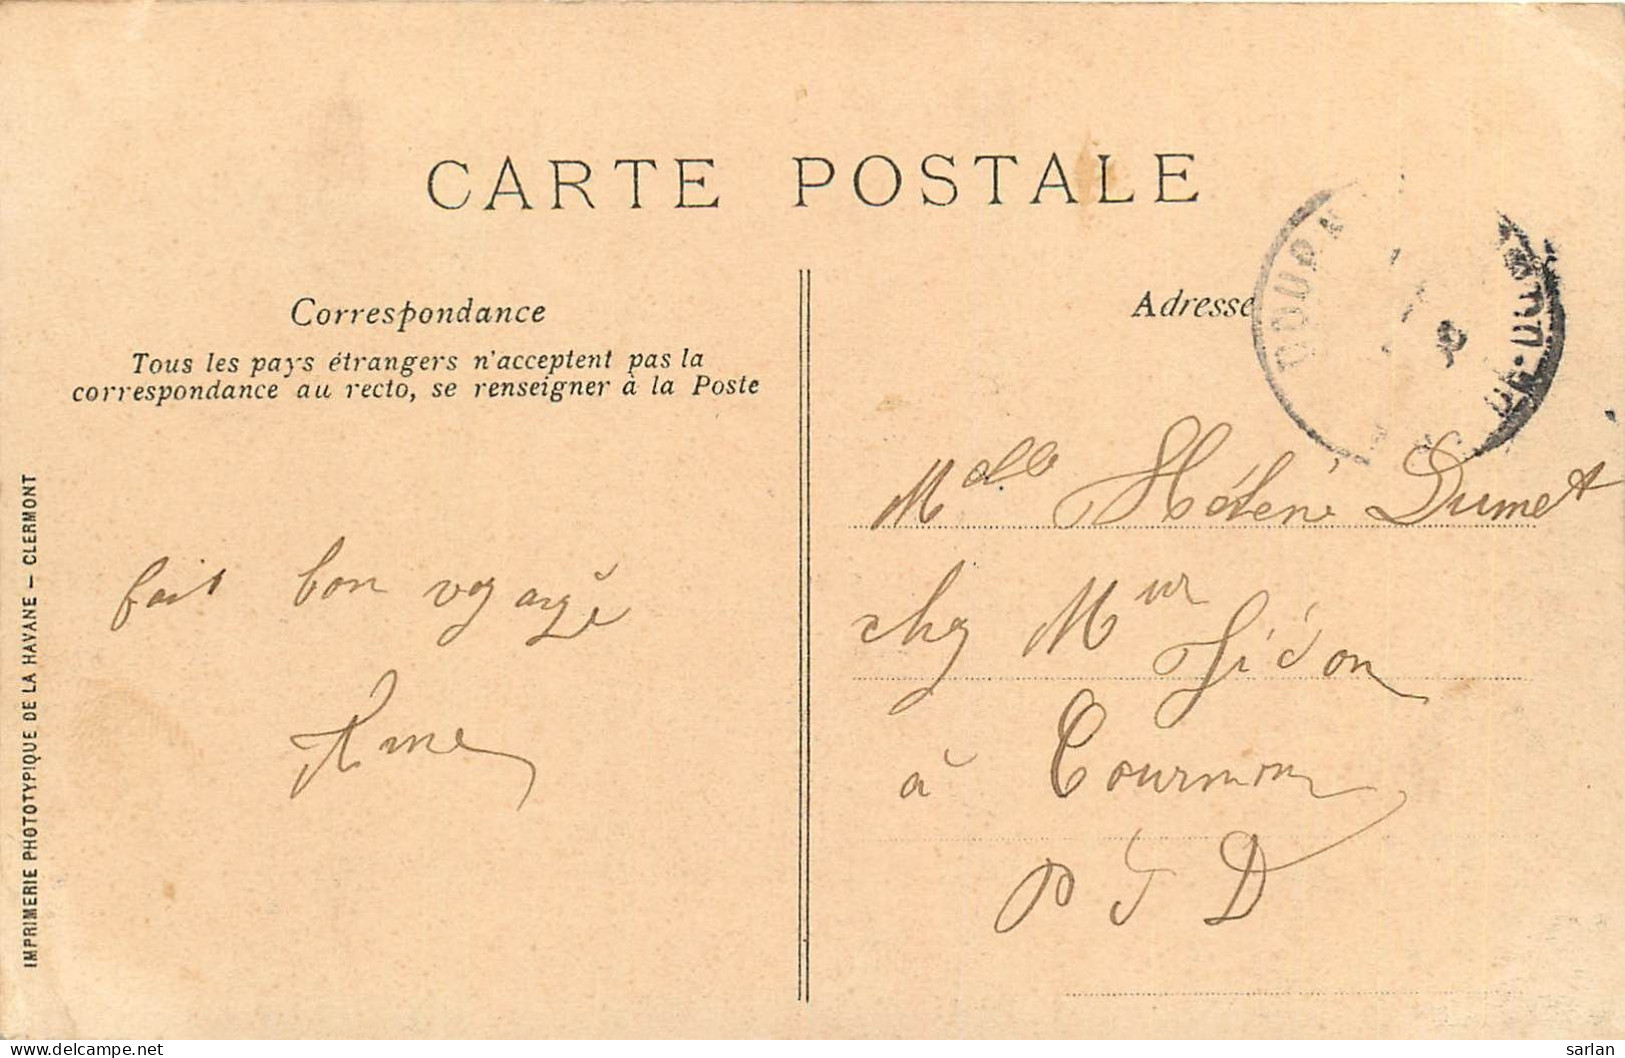 CARTE POSTALE
Correspondance
Tous les pays étrangers n'acceptent pas la
correspondance au recto, se renseigner à la Poste
fait bon voyage
Adresse
COURN
Melle Hélène Dumet
chez Mur
à Cournon
P D D
IMPRIMERIE PHOTOTYPIQUE DE LA HAVANE – CLERMONT
www.delcampe.net
sarlan